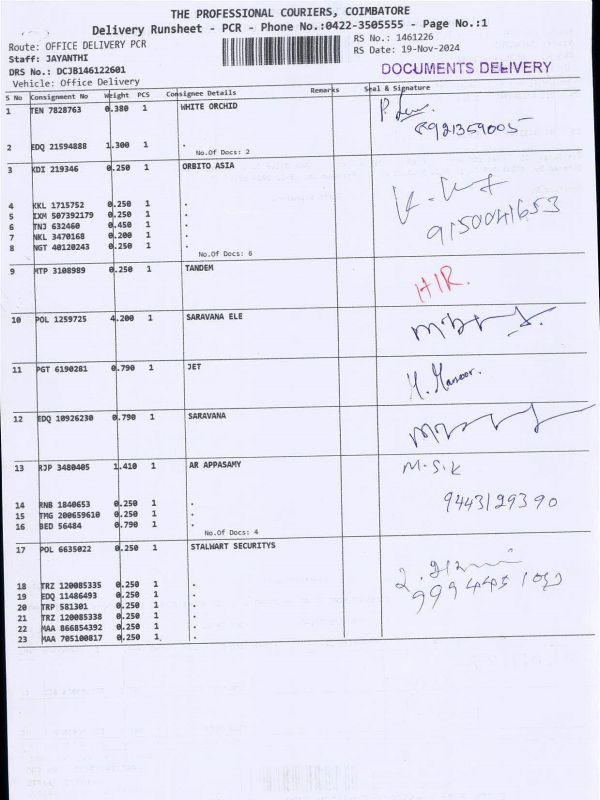 THE PROFESSIONAL COURIERS, COIMBATORE
Delivery Runsheet - PCR - Phone No.:0422-3505555 - Page No.:1
Route: OFFICE DELIVERY PCR
RS No.: 1461226
Staff: JAYANTHI
RS Date: 19-Nov-2024
DRS No.: DCJB146122601
DOCUMENTS DELIVERY
Vehicle: Office Delivery
S No Consignment No Weight PCS Consignee Details Remarks Seal & Signature
1 TEN 7828763 0.380 1 WHITE ORCHID
8921359005
2 EDQ 21594888 1.300 1 .
No.Of Docs: 2
3 KDI 219346 0.250 1 ORBITO ASIA
4 KKL 1715752 0.250 1 .
5 IXM 507392179 0.250 1 .
6 TNJ 632460 0.450 1 .
7 NKL 3470168 0.200 1 .
8 NGT 40120243 0.250 1 .
9150041653
No.Of Docs: 6
9 MTP 3108989 0.250 1 TANDEM
HIR.
10 POL 1259725 4.200 1 SARAVANA ELE
11 PGT 6190281 0.790 1 JET
12 EDQ 10926230 0.790 1 SARAVANA
13 RJP 3480405 1.410 1 AR APPASAMY M.S.K
14 RNB 1840653 0.250 1 .
9443129390
15 TMG 200659610 0.250 1 .
16 BED 56484 0.790 1 .
No.Of Docs: 4
17 POL 6635022 0.250 1 STALWART SECURITYS
18 TRZ 120085335 0.250 1 .
19 EDQ 11486493 0.250 1 .
20 TRP 581301 0.250 1 .
21 TRZ 120085338 0.250 1 .
22 MAA 866854392 0.250 1 .
23 MAA 705100817 0.250 1 .